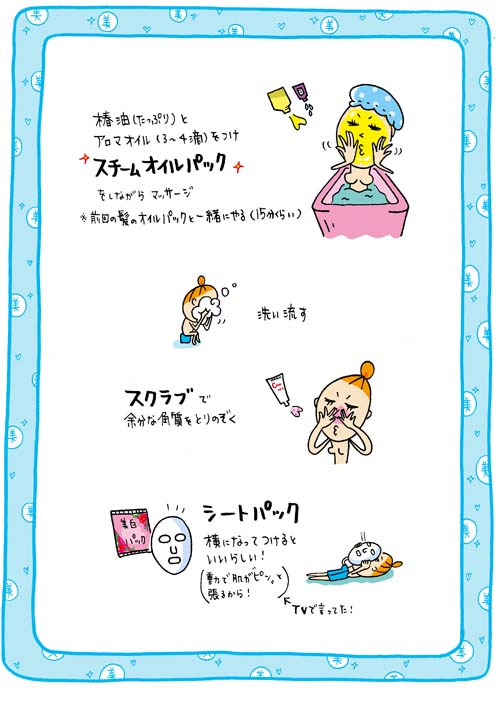 椿油(たっぷり)と
アロマオイル(3〜4滴)をつけ
スチームオイルパック
をしながら マッサージ
※前回の髪のオイルパックと一緒にやる(15分くらい)
洗い流す
スクラブで
余分な角質をとりのぞく
シートパック
美白
パック
横になってつけると
いいらしい!
(重力で肌がピンと
張るから!)
TVで言ってた!
美